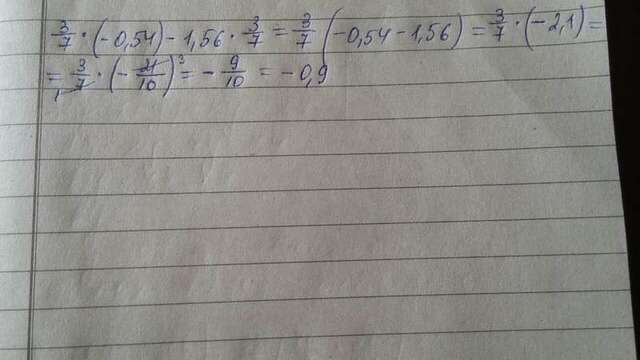 3/7 · (-0,54) - 1,56 · 3/7 = 3/7 (-0,54 - 1,56) = 3/7 · (-2,1) =
= 3/7 1 · (-21/10) 3 = - 9/10 = -0,9